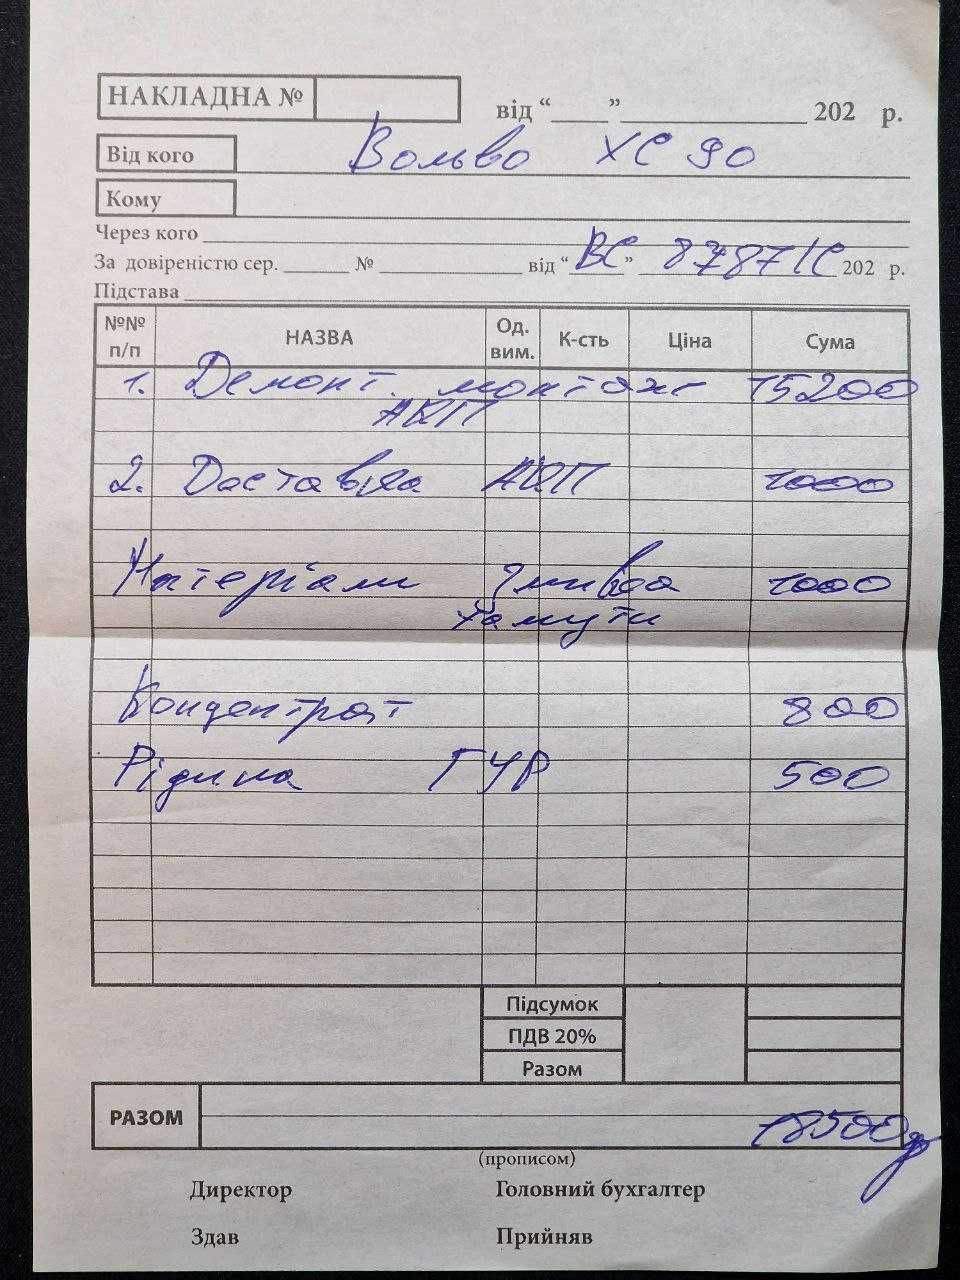 НАКЛАДНА №
від “____” ______________ 202 р.
Від кого Вольво ХС 90
Кому
Через кого
За довіреністю сер. ______ № ____________ від “ВС” 8787ІС 202 р.
Підстава
№№ п/п НАЗВА Од. вим. К-сть Ціна Сума
1. Демонт. монтаж 15200
АКП
2. Доставка АКП 1000
Матеріали змивка 1000
хамути
Концентрат 800
Рідина ГУР 500
Підсумок
ПДВ 20%
Разом
РАЗОМ 18500
(прописом)
Директор Головний бухгалтер
Здав Прийняв